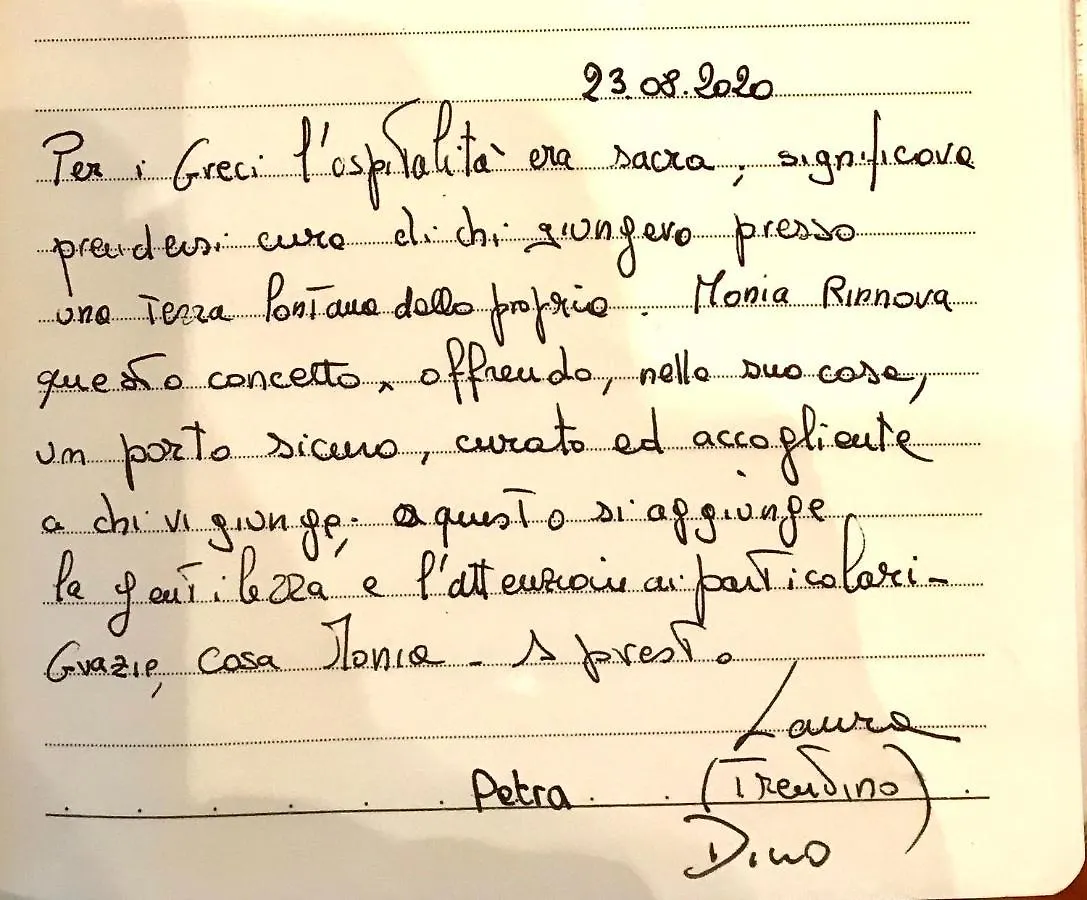 23.08.2020
Per i Greci l'ospitalità era sacra, significava
prendersi cura di chi giungeva presso
una terra lontana dalla propria. Monia Rinnova
questo concetto, offrendo, nella sua casa,
un porto sicuro, curato ed accogliente
a chi vi giunge; a questo si aggiunge
la gentilezza e l'attenzione ai particolari-
Grazie, casa Monia - A presto
Laura
Petra (Trentino)
Dino